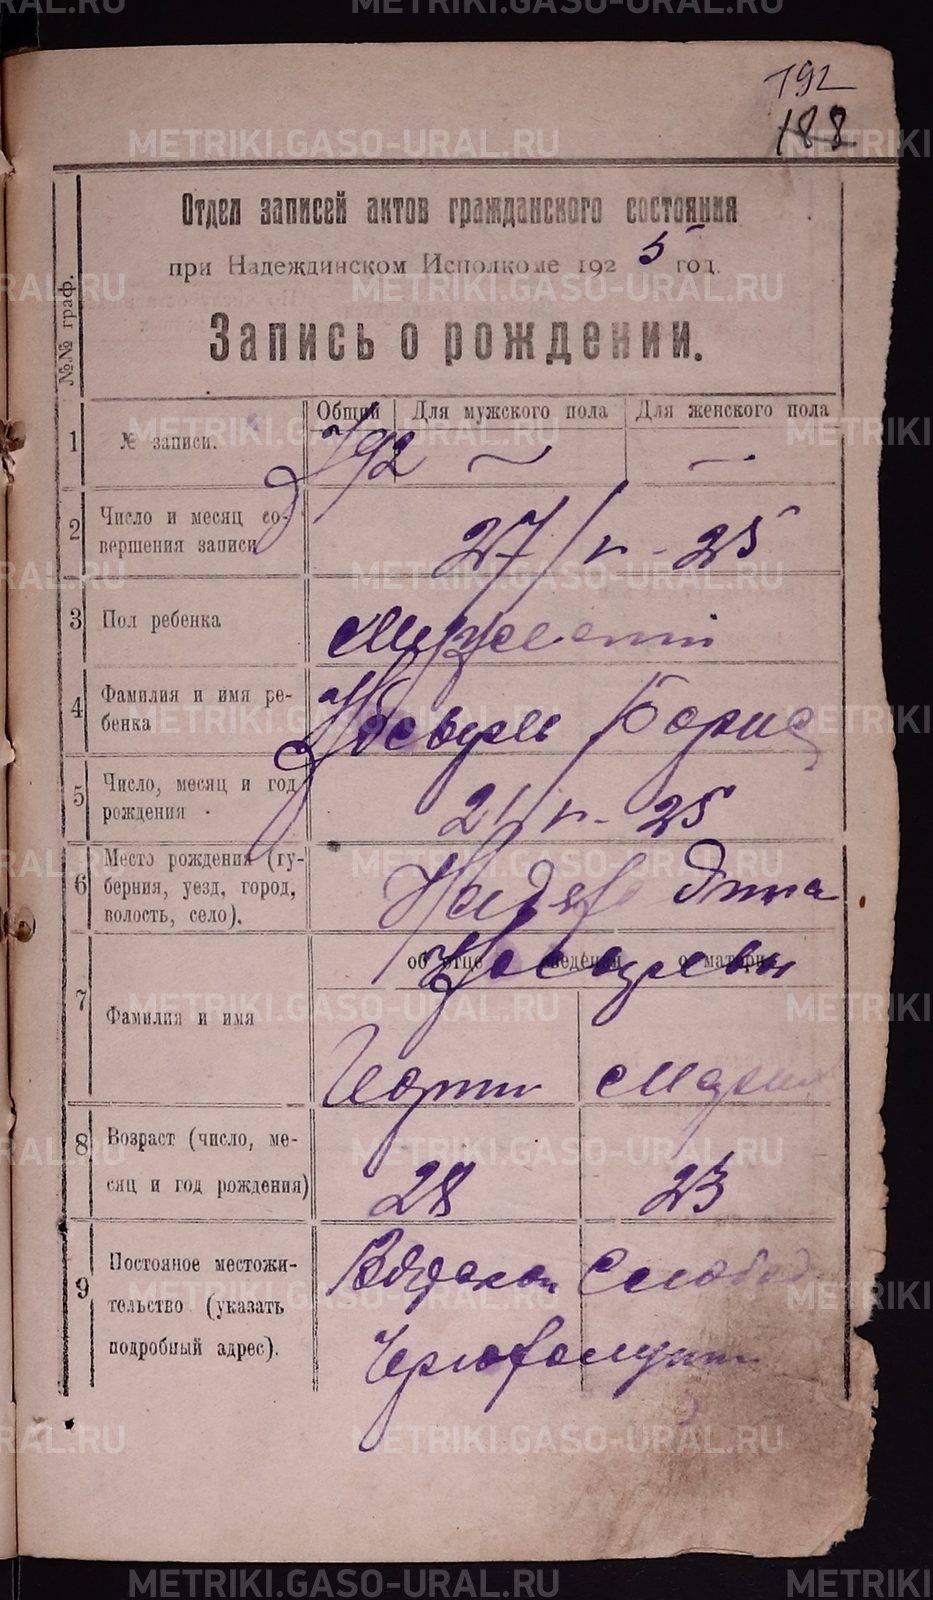 192
188
Отдел записей актов гражданского состояния
при Надеждинском Исполкоме 1925 год.
Запись о рождении.
№№ граф.
Общий Для мужского пола Для женского пола
1 № записи. 192 — —
2 Число и месяц совершения записи 27/V - 25
3 Пол ребенка Мужской
4 Фамилия и имя ребенка Борис
5 Число, месяц и год рождения 21/V - 25
6 Место рождения (губерния, уезд, город, волость, село).
об отце сведения о матери
7 Фамилия и имя Мария
8 Возраст (число, месяц и год рождения) 28 23
9 Постояное местожительство (указать подробный адрес).
METRIKI.GASO-URAL.RU